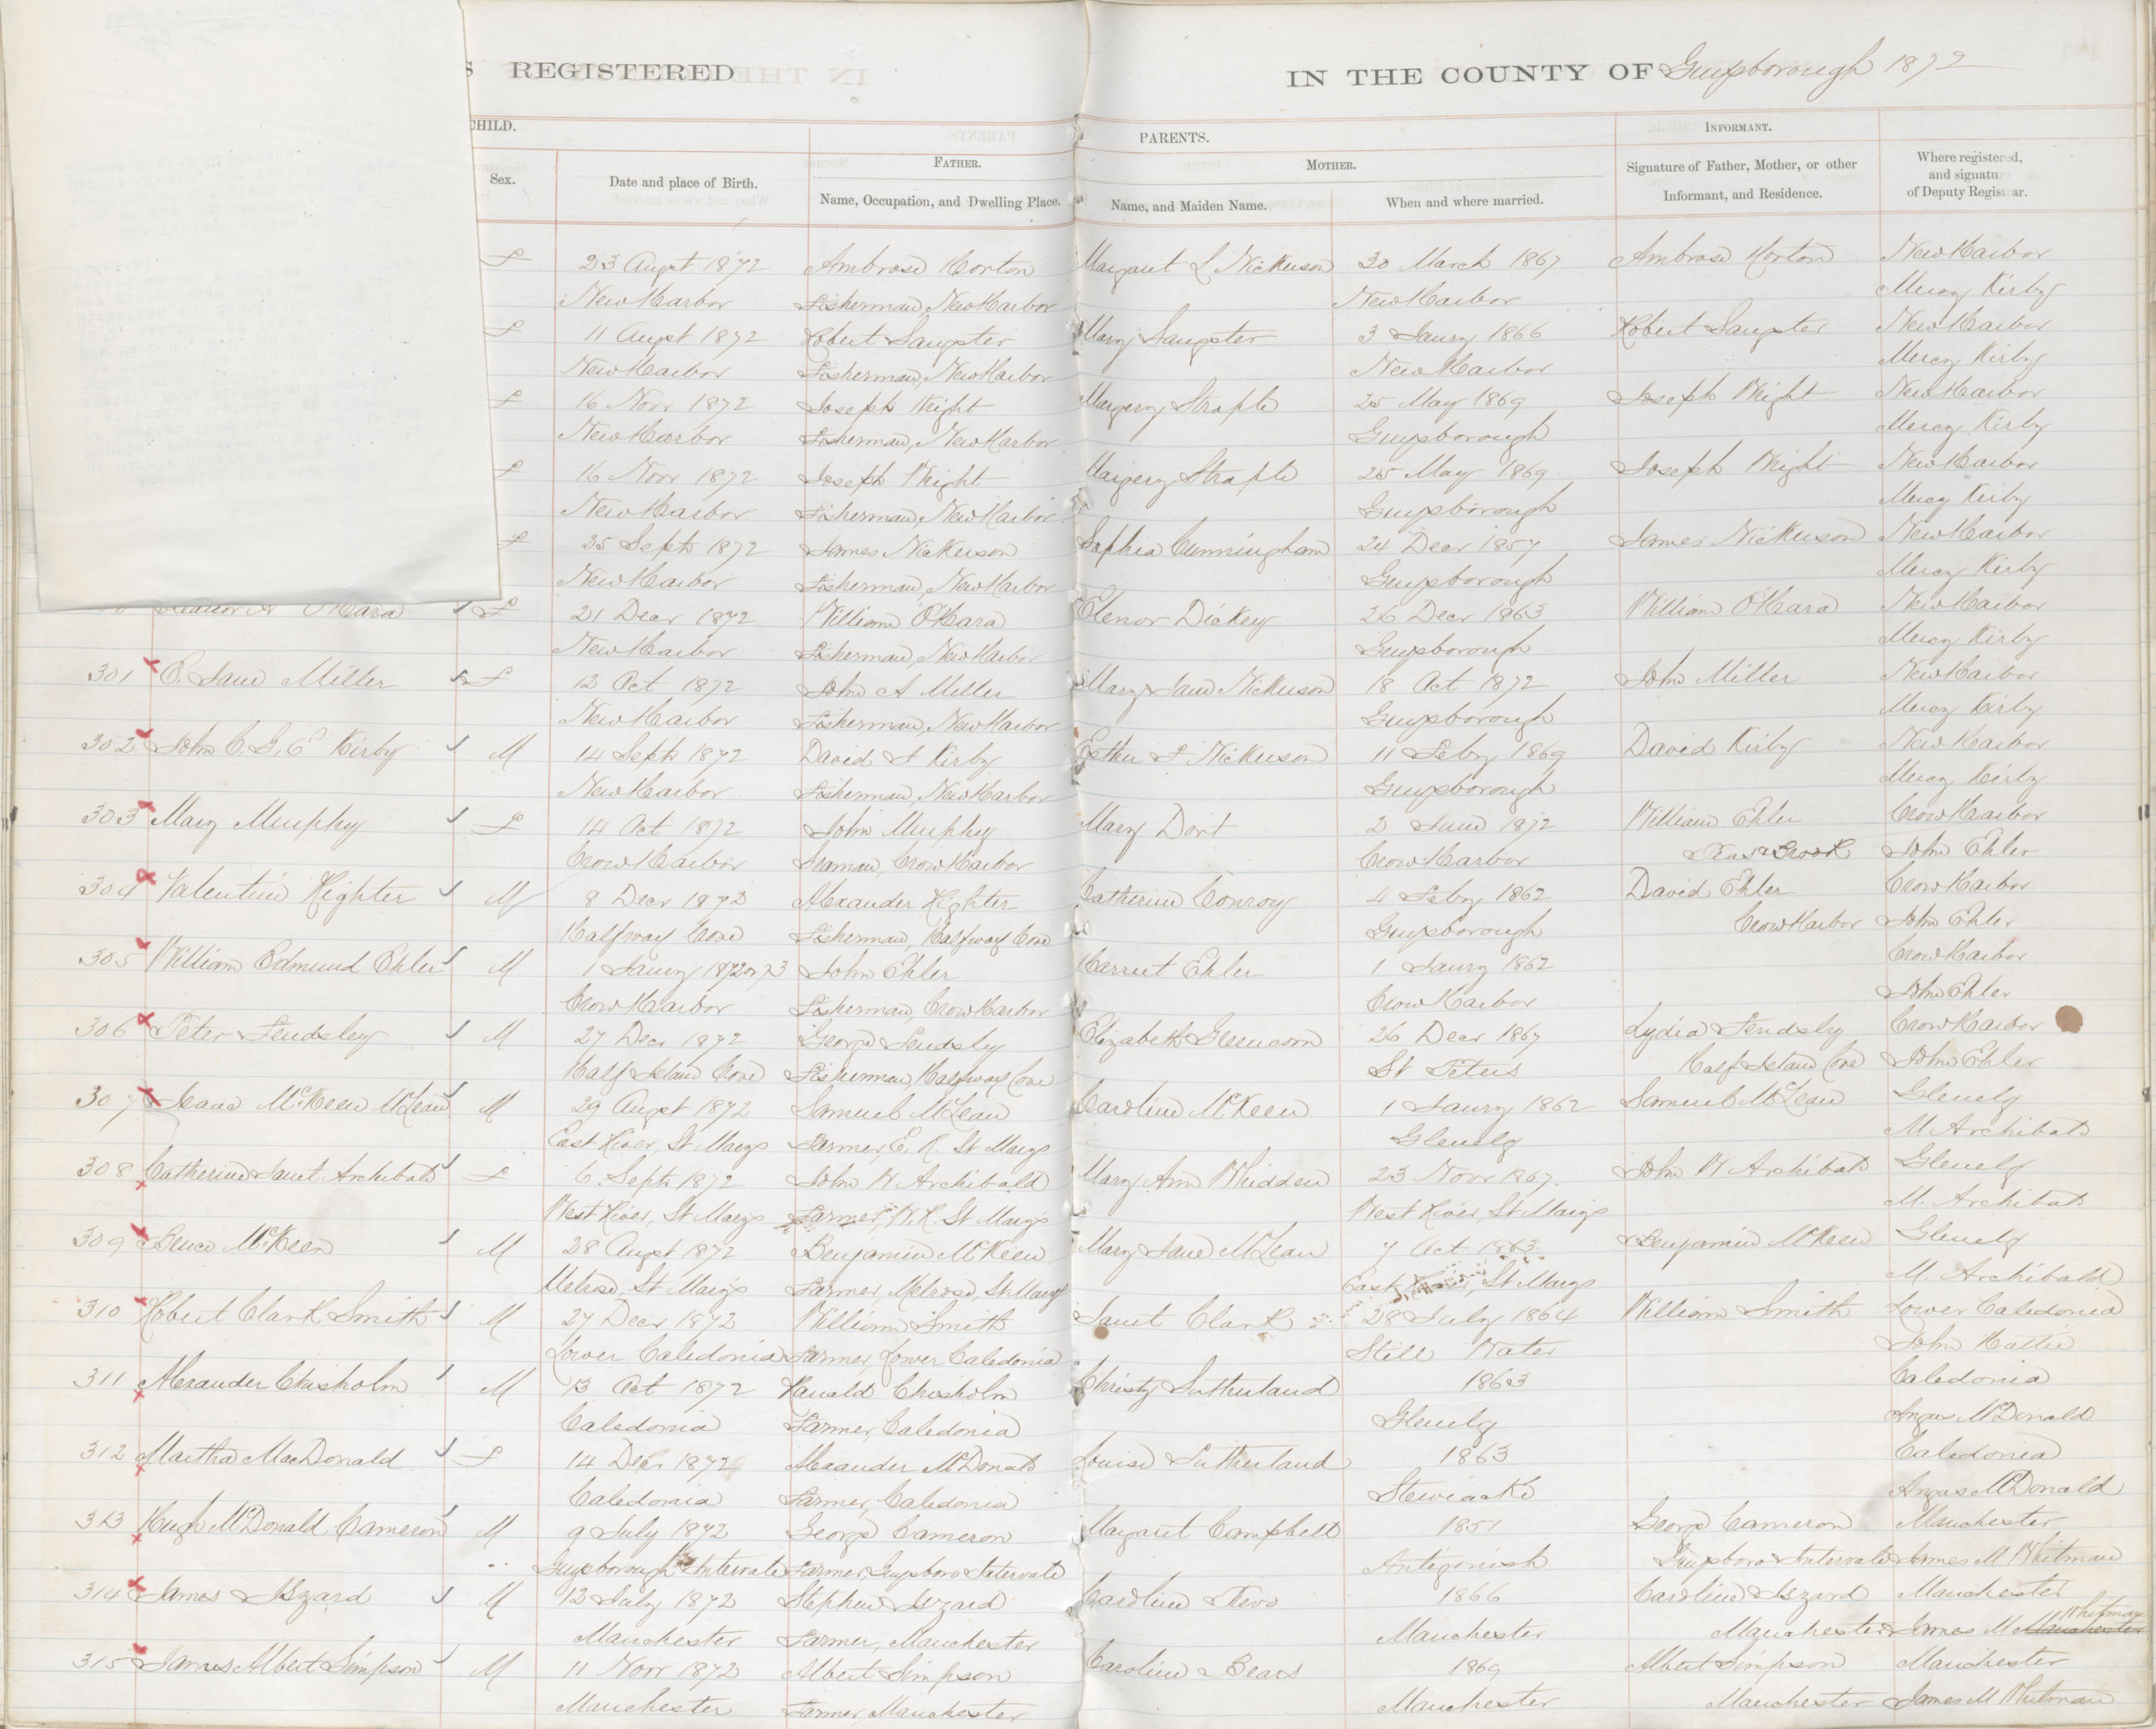 REGISTERED
IN THE COUNTY OF Guysborough 1872
CHILD.
PARENTS.
INFORMANT.
Sex.
Date and place of Birth.
FATHER.
Name, Occupation, and Dwelling Place.
MOTHER.
Name, and Maiden Name.
When and where married.
Signature of Father, Mother, or other
Informant, and Residence.
Where registered,
and signature
of Deputy Registrar.
f 23 Augst 1872 Ambrose Horton Margaret L Nickerson 30 March 1867 Ambrose Horton New Harbor
New Harbor Fisherman, New Harbor New Harbor Mercy Kirby
f 11 Augst 1872 Robert Sangster Mary Sangster 3 Jany 1866 Robert Sangster New Harbor
New Harbor Fisherman, New Harbor New Harbor Mercy Kirby
f 16 Novr 1872 Joseph Wright Margery Straple 25 May 1869 Joseph Wright New Harbor
New Harbor Fisherman, New Harbor Guysborough Mercy Kirby
f 16 Novr 1872 Joseph Wright Margery Straple 25 May 1869 Joseph Wright New Harbor
New Harbor Fisherman, New Harbor Guysborough Mercy Kirby
f 25 Septr 1872 James Nickerson Sophia Cunningham 24 Decr 1857 James Nickerson New Harbor
New Harbor Fisherman, New Harbor Guysborough Mercy Kirby
O'Hara f 21 Decr 1872 William O'Hara Elenor Dickey 26 Decr 1863 William O'Hara New Harbor
New Harbor Fisherman, New Harbor Guysborough Mercy Kirby
301 E. Jane Miller f 12 Oct 1872 John A Miller Mary Jane Nickerson 18 Oct 1872 John Miller New Harbor
New Harbor Fisherman, New Harbor Guysborough Mercy Kirby
302 John C. G. E Kirby M 14 Septr 1872 David S Kirby Esther F Nickerson 11 Feby 1869 David Kirby New Harbor
New Harbor Fisherman, New Harbor Guysborough Mercy Kirby
303 Mary Murphy f 14 Oct 1872 John Murphy Mary Dort 2 June 1872 William Ehler Crow Harbor
Crow Harbor Seaman, Crow Harbor Crow Harbor Brook John Ehler
304 Valentine Righter M 8 Decr 1872 Alexander Righter Catherine Conroy 4 Feby 1862 David Ehler Crow Harbor
Halfway Cove Fisherman, Halfway Cove Guysborough Crow Harbor John Ehler
305 William Edmund Ehler M 1 Jany 1872 or 73 John Ehler Harriet Ehler 1 Jany 1862 Crow Harbor
Crow Harbor Fisherman, Crow Harbor Crow Harbor John Ehler
306 Peter Fendsley M 27 Decr 1872 George Fendsly Elizabeth Greencorn 26 Decr 1867 Lydia Fendsly Crow Harbor
Half Island Cove Fisherman, Halfway Cove St Peters Half Island Cove John Ehler
307 Isaac McKeen McLean M 29 Augst 1872 Samuel McLean Caroline McKeen 1 Jany 1862 Samuel McLean Glenelg
East River, St Marys Farmer, E. R. St Marys Glenelg M Archibald
308 Catherine Janet Archibald f 6 Septr 1872 John W Archibald Mary Ann Whidden 23 Novr 1867 John W Archibald Glenelg
West River, St Marys Farmer, W. R. St Marys West River, St Marys M. Archibald
309 Bruce McKeen M 28 Augst 1872 Benjamin McKeen Mary Jane McLean 7 Oct 1863 Benjamin McKeen Glenelg
Melrose, St Marys Farmer, Melrose, St Marys East River, St Marys M. Archibald
310 Robert Clark Smith M 27 Decr 1872 William Smith Janet Clark 28 July 1864 William Smith Lower Caledonia
Lower Caledonia Farmer, Lower Caledonia Still Water John Hattie
311 Alexander Chisholm M 13 Oct 1872 Ranald Chisholm Christy Sutherland 1863 Caledonia
Caledonia Farmer, Caledonia Glenelg Angus McDonald
312 Martha MacDonald f 14 Decr 1872 Alexander McDonald Louise Sutherland 1863 Caledonia
Caledonia Farmer, Caledonia Stewiacke Angus McDonald
313 Hugh McDonald Cameron M 9 July 1872 George Cameron Margaret Campbell 1851 George Cameron Manchester
Guysborough Intervale Farmer, Guysboro Intervale Antigonish Guysboro Intervale James M Whitman
314 James Iszard M 12 July 1872 Stephen Iszard Caroline 1866 Caroline Iszard Manchester
Manchester Farmer, Manchester Manchester Manchester James M Manchester Whitman
315 James Albert Simpson M 11 Novr 1872 Albert Simpson Caroline Bears 1869 Albert Simpson Manchester
Manchester Farmer, Manchester Manchester Manchester James M Whitman